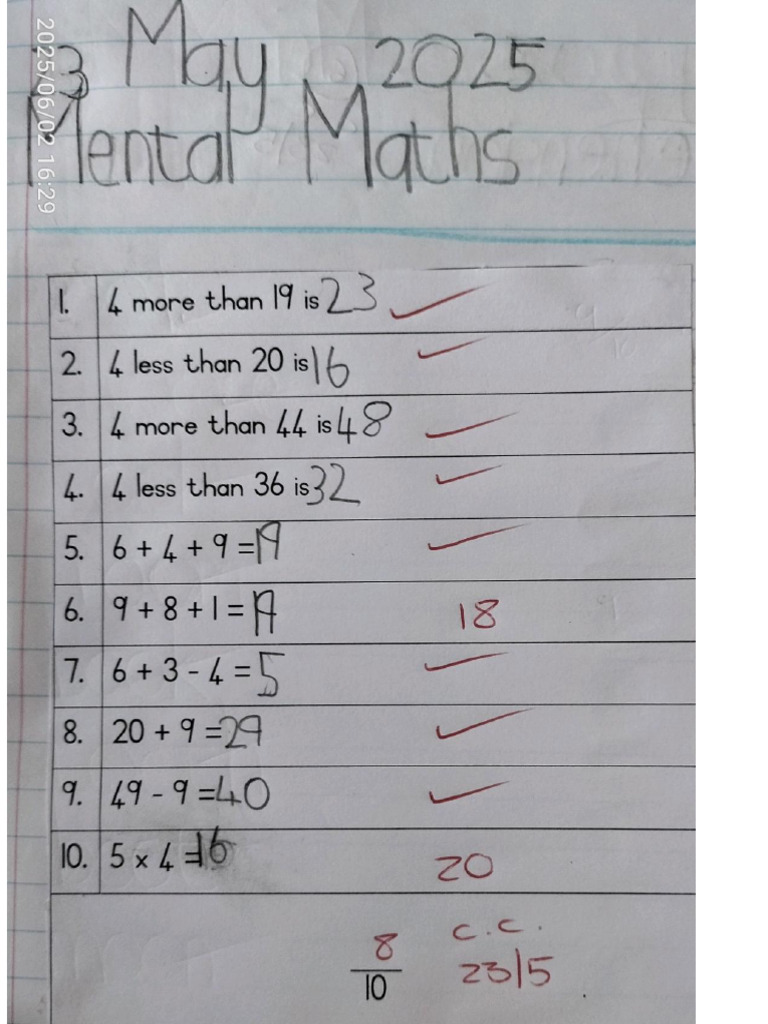 2025/06/02 16:29
23 May 2025
Mental Maths
1. 4 more than 19 is 23
2. 4 less than 20 is 16
3. 4 more than 44 is 48
4. 4 less than 36 is 32
5. 6 + 4 + 9 = 19
6. 9 + 8 + 1 = 19 18
7. 6 + 3 - 4 = 5
8. 20 + 9 = 29
9. 49 - 9 = 40
10. 5 x 4 = 16 20
8/10 c.c.
23/5